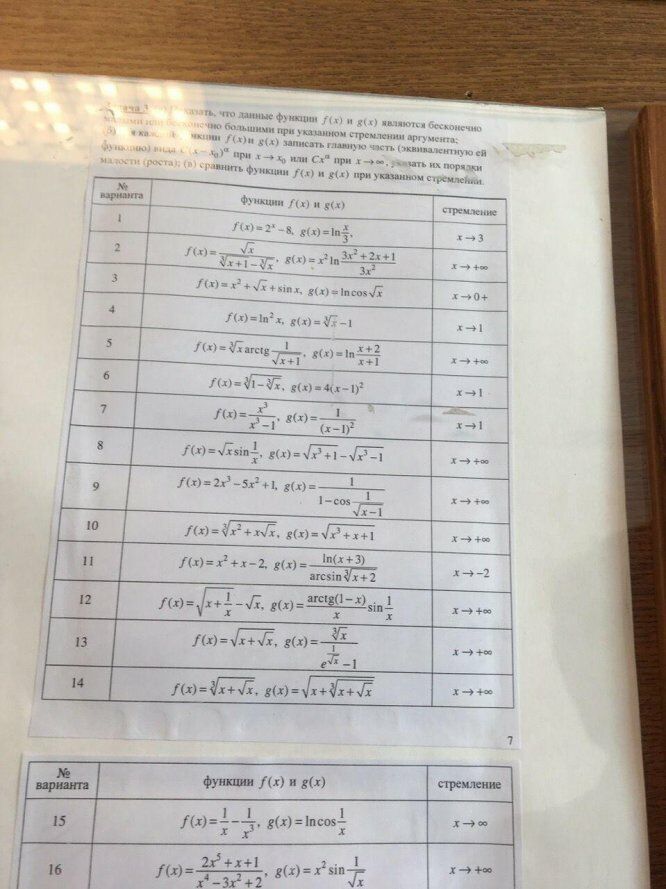 Задача 3. (а) Показать, что данные функции f(x) и g(x) являются бесконечно
малыми или бесконечно большими при указанном стремлении аргумента;
(б) для каждой функции f(x) и g(x) записать главную часть (эквивалентную ей
функцию) вида C(x − x₀)^α при x → x₀ или Cx^α при x → ∞, указать их порядки
малости (роста); (в) сравнить функции f(x) и g(x) при указанном стремлении.
№ варианта функции f(x) и g(x) стремление
1 f(x) = 2^x − 8, g(x) = ln(x/3), x → 3
2 f(x) = √x/(∛(x+1) − ∛x), g(x) = x² ln((3x² + 2x + 1)/(3x²)) x → +∞
3 f(x) = x² + √x + sin x, g(x) = ln cos √x x → 0+
4 f(x) = ln² x, g(x) = ∛x − 1 x → 1
5 f(x) = ∛x arctg(1/√(x+1)), g(x) = ln((x+2)/(x+1)) x → +∞
6 f(x) = ∛(1 − ∛x), g(x) = 4(x−1)² x → 1
7 f(x) = x³/(x³ − 1), g(x) = 1/(x−1)² x → 1
8 f(x) = √x sin(1/x), g(x) = √(x³+1) − √(x³−1) x → +∞
9 f(x) = 2x³ − 5x² + 1, g(x) = 1/(1 − cos(1/√(x−1))) x → +∞
10 f(x) = ∛(x² + x√x), g(x) = √(x³ + x + 1) x → +∞
11 f(x) = x² + x − 2, g(x) = ln(x+3)/arcsin ∛(x+2) x → −2
12 f(x) = √(x + 1/x) − √x, g(x) = (arctg(1−x)/x) sin(1/x) x → +∞
13 f(x) = √(x + √x), g(x) = ∛x/(e^(1/√x) − 1) x → +∞
14 f(x) = ∛(x + √x), g(x) = √(x + ∛(x + √x)) x → +∞
7
№ варианта функции f(x) и g(x) стремление
15 f(x) = 1/x − 1/x³, g(x) = ln cos(1/x) x → ∞
16 f(x) = (2x⁵ + x + 1)/(x⁴ − 3x² + 2), g(x) = x² sin(1/√x) x → +∞